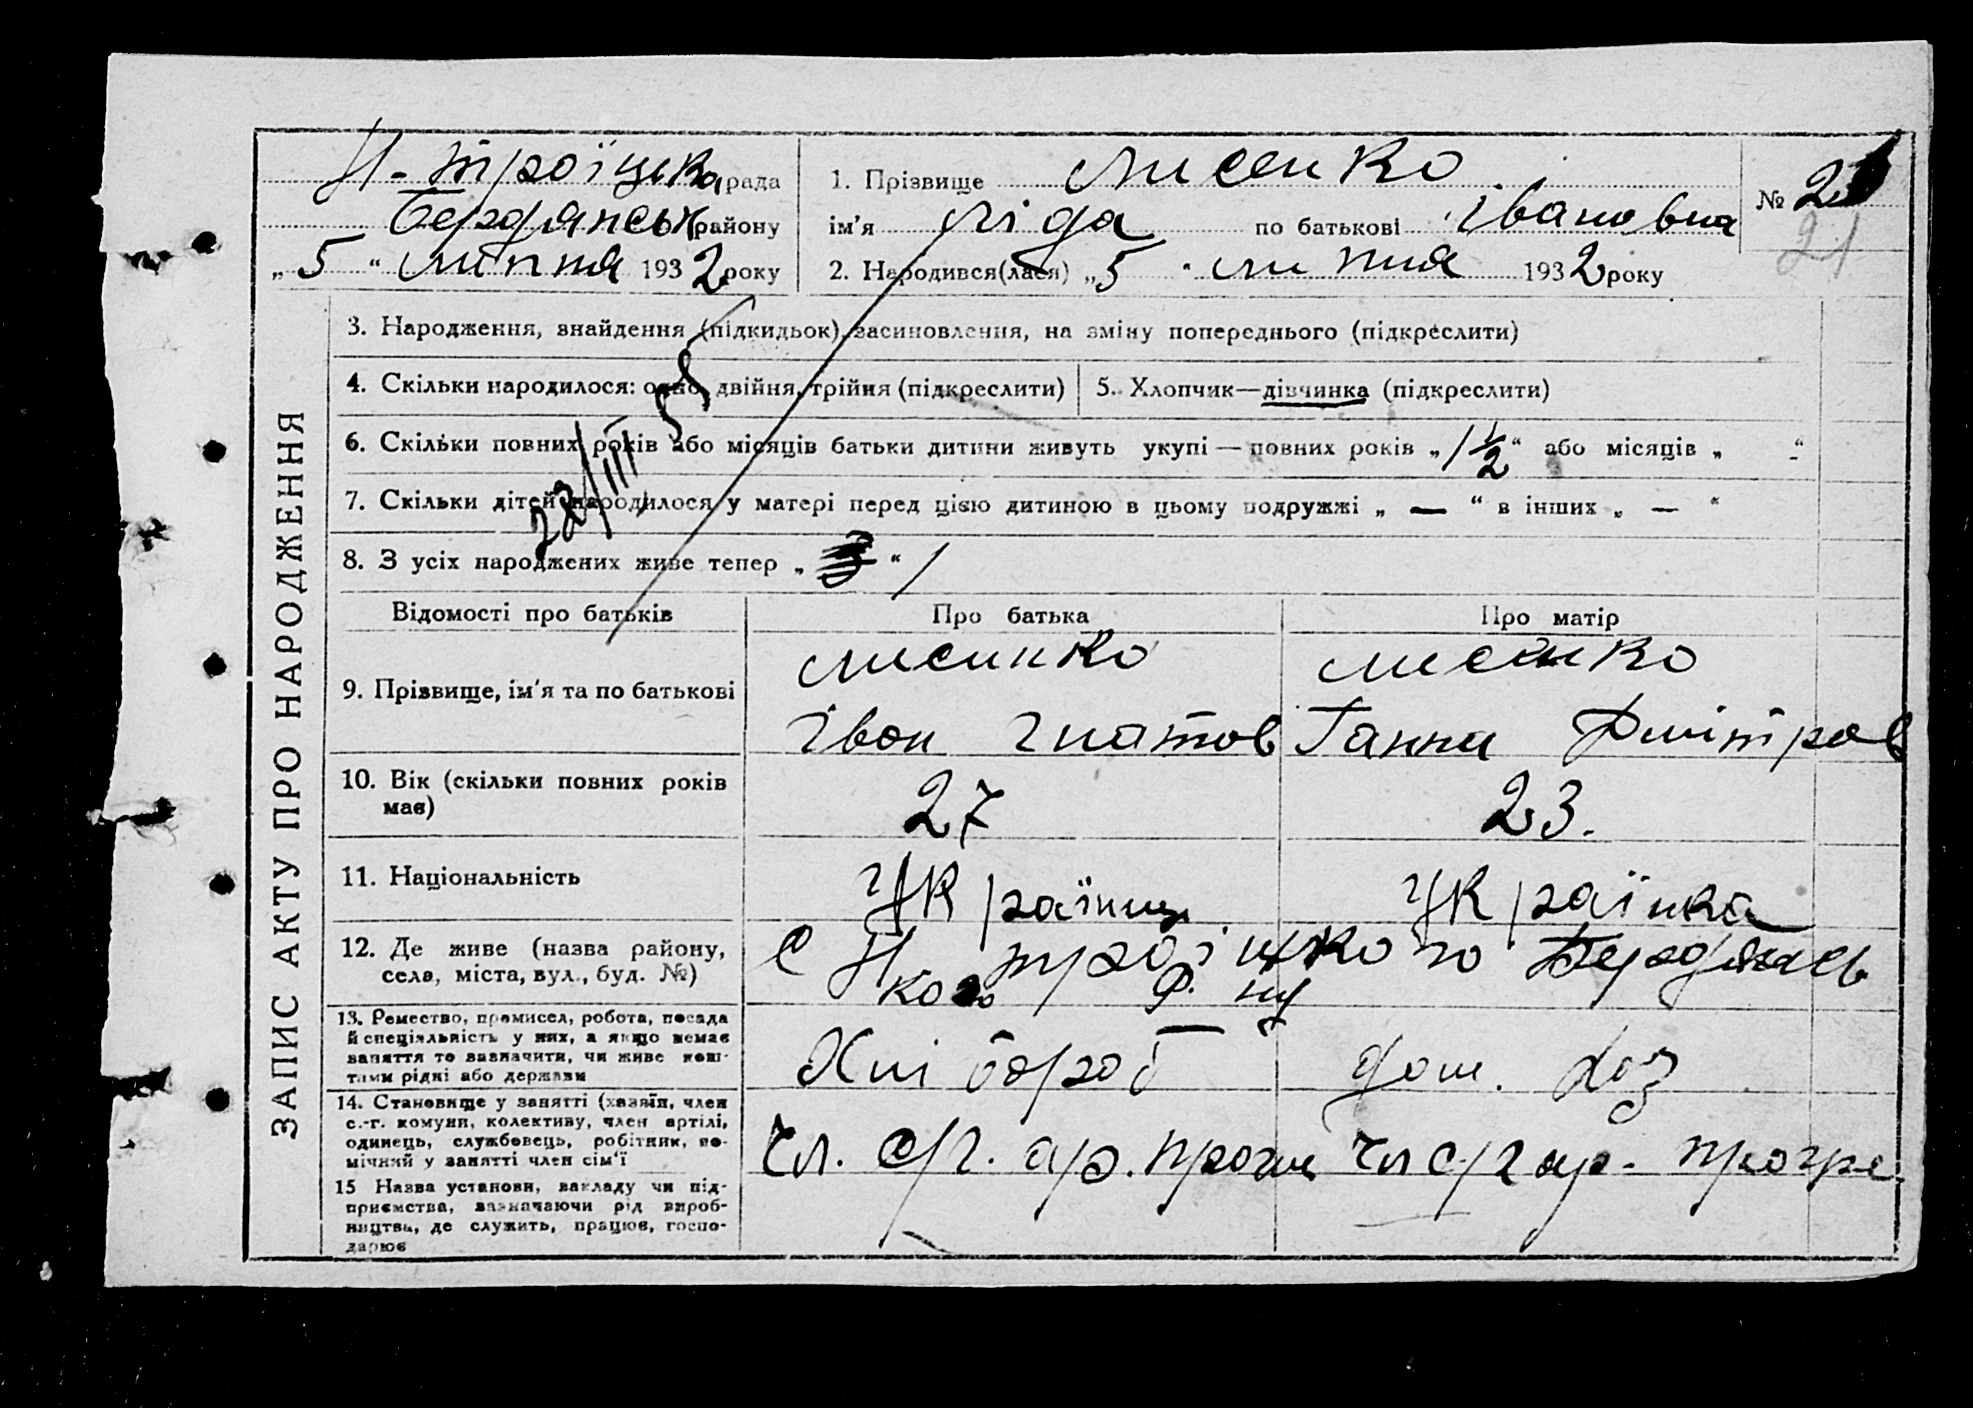 Н-троїцька рада
Бердянськ району
„ 5 “ липня 1932 року
1. Прізвище Лисенко
ім'я Ліда по батькові Івановна
2. Народився(лася) „ 5 “ липня 1932 року
№ 21
21
3. Народження, знайдення (підкидьок), засиновлення, на зміну попереднього (підкреслити)
4. Скільки народилося: одно, двійня, трійня (підкреслити)
5. Хлопчик—дівчинка (підкреслити)
6. Скільки повних років або місяців батьки дитини живуть укупі — повних років „ 1 1/2 “ або місяців „ - “
7. Скільки дітей народилося у матері перед цією дитиною в цьому подружжі „ — “ в інших „ — “
8. З усіх народжених живе тепер „ “ 1
22/III 55
ЗАПИС АКТУ ПРО НАРОДЖЕННЯ
Відомості про батьків
Про батька
Про матір
9. Прізвище, ім'я та по батькові
Лисинко
Івон Гнатов
Лисенко
Ганна Дмітров
10. Вік (скільки повних років має)
27
23.
11. Національність
Українць
Українка
12. Де живе (назва району, села, міста, вул., буд. №)
с Н троіцького Бердянсь
кого р. ну
13. Ремество, промисел, робота, посада
й спеціяльність у них, а якщо немає
заняття то зазначити, чи живе кош-
тами рідні або держави
Хлібороб
дом. хоз
14. Становище у занятті (хазяїн, член
с.-г. комуни, колективу, член артілі,
одинець, службовець, робітник, по-
мічний у занятті член сім'ї
15 Назва установи, закладу чи під-
приємства, зазначаючи рід вироб-
ництва, де служить, працює, госпо-
дарює
Чл. с/г. ар.
Чл с/г ар- прогре